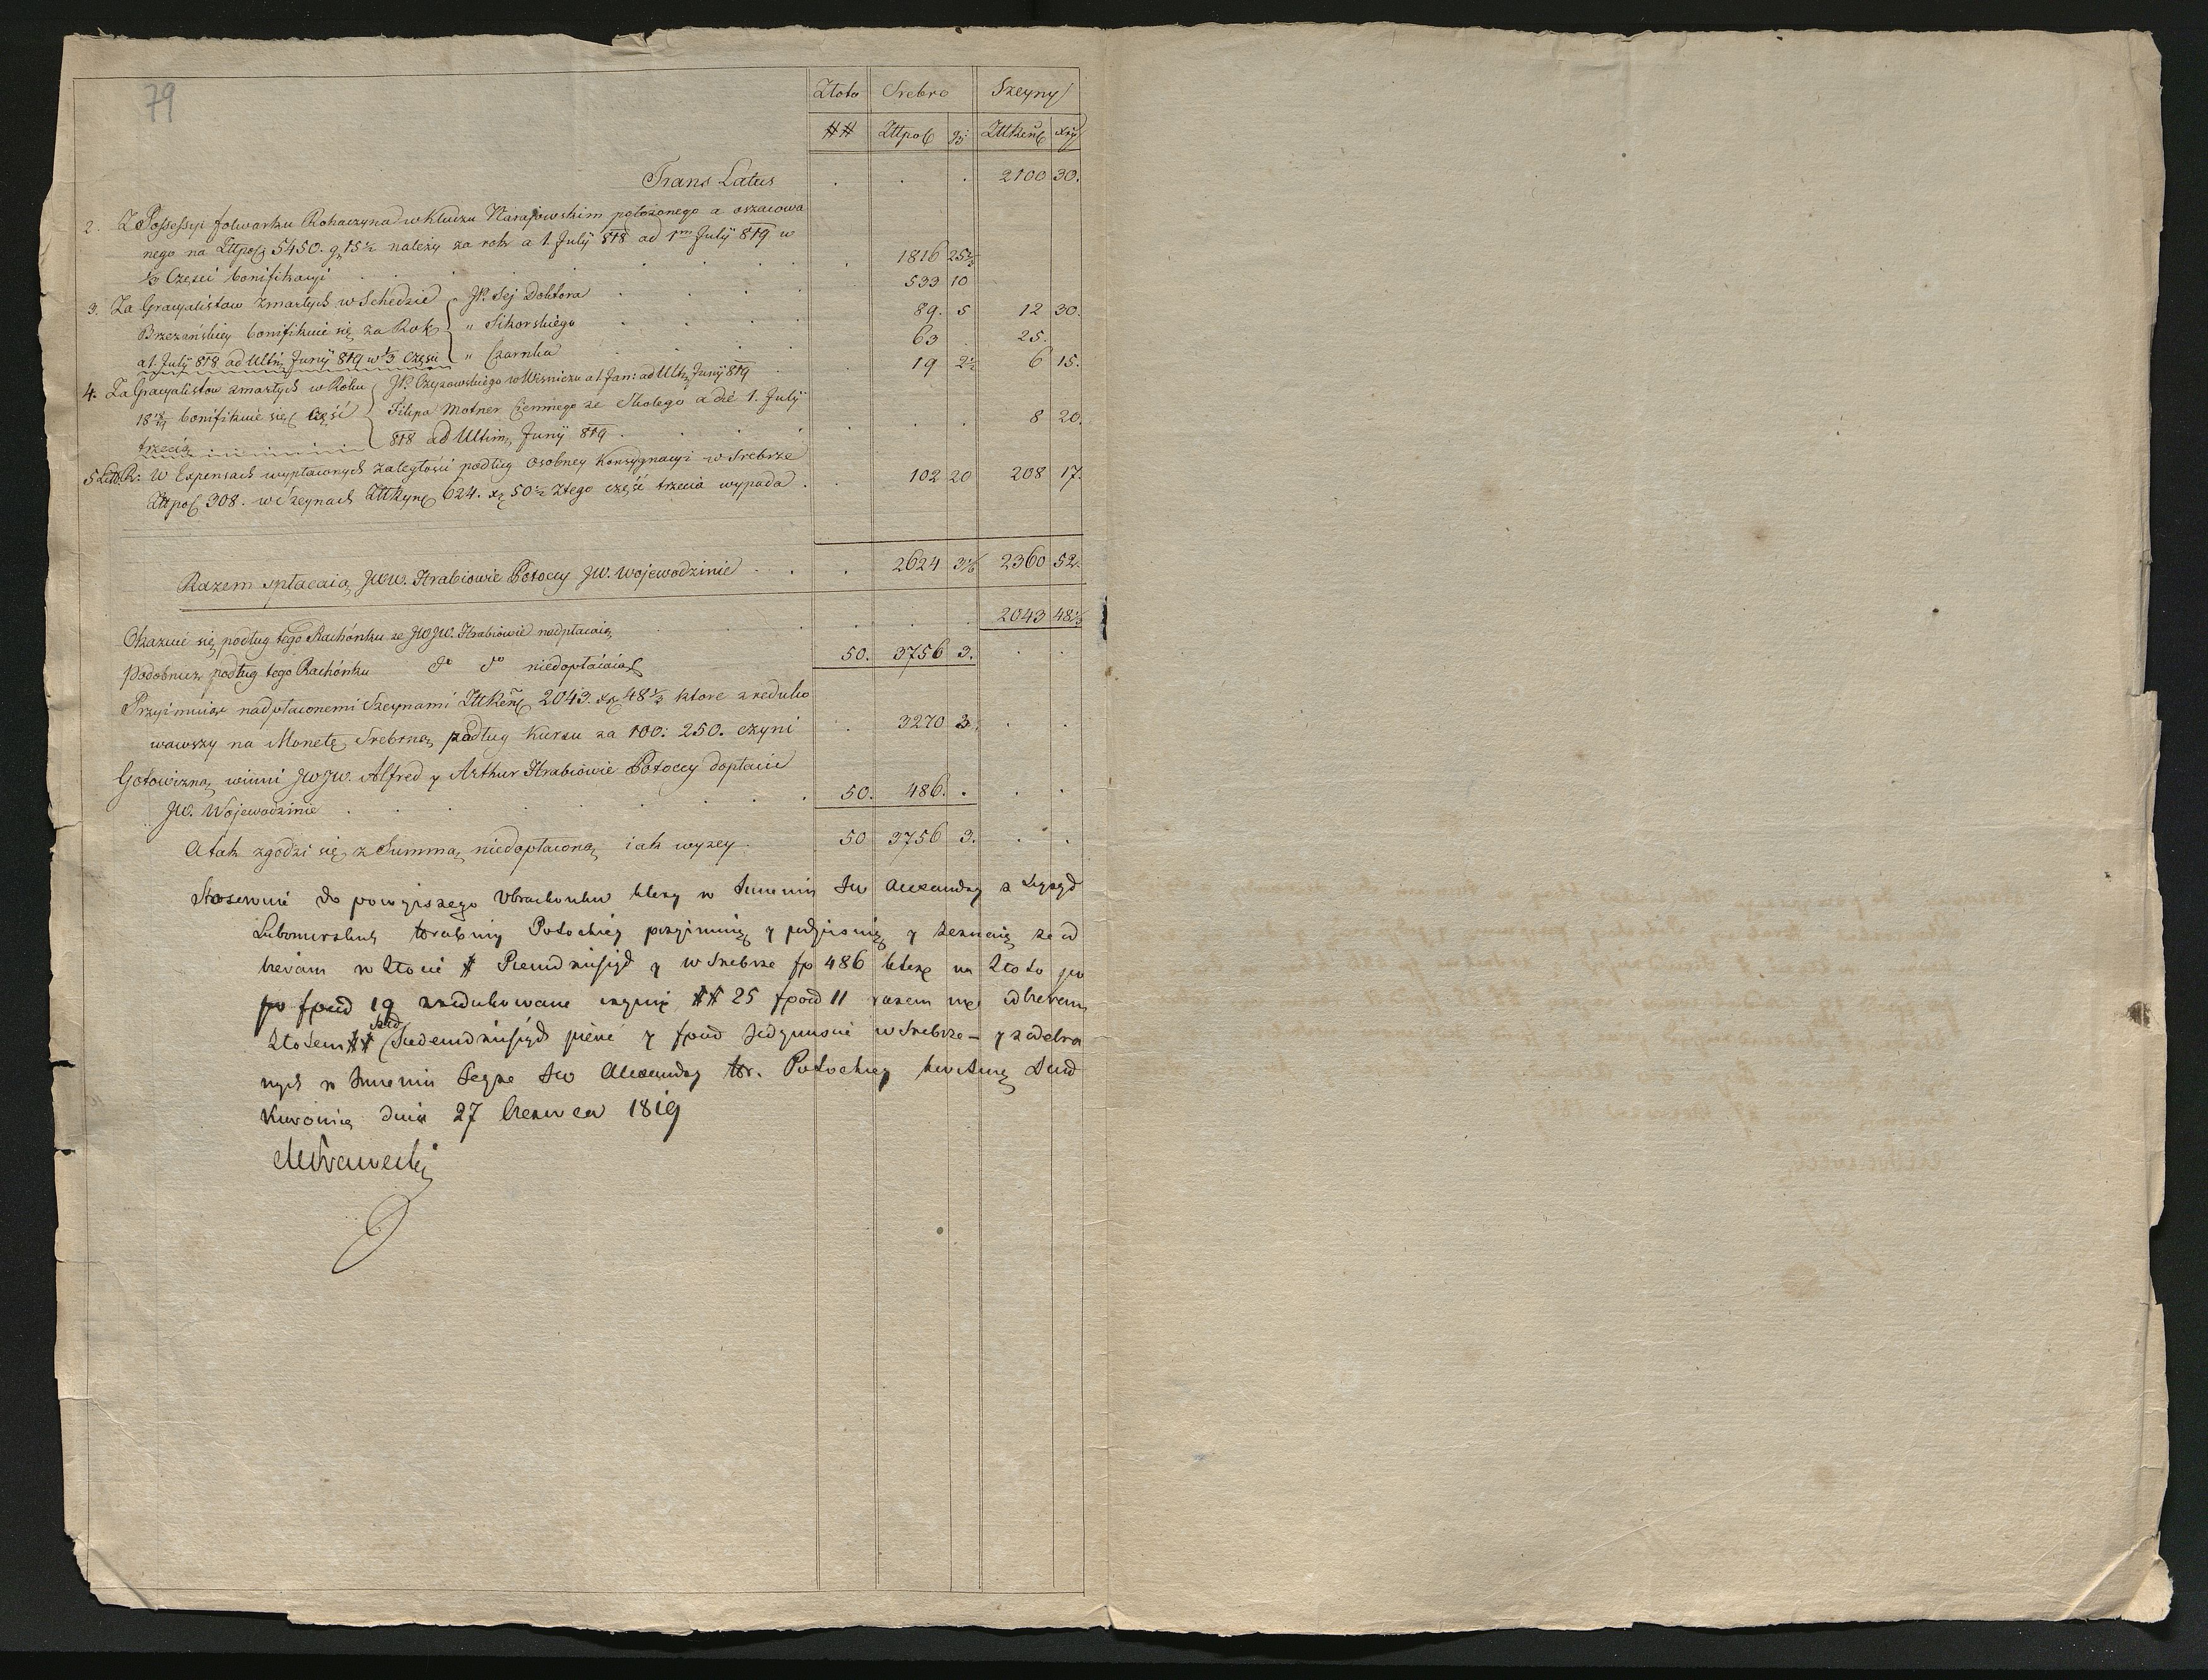 79
Złoto Srebro Szeyny
## Złłpol gr Złłkeng xry
Trans Latus . . . 2100 30.
2. Z Possessyi folwarku Rohaczyna w Kluczu Narajowskim położonego a oszacowa
nego na Złłpol 5450. gr 15½ należy za rok a 1. July 818 ad 1ma July 819 w
⅓ Części bonifikacyi . 1816 25⅔
3. Za Gracyalistow zmarłych w Schedzie JP. Sej Doktora 533 10
Brzeżańskiey bonifikuie się za Rok " Sikorskiego 89. 5 12 30.
a 1. July 818 ad Ultim Juny 819 w ⅓ Części " Czarnka 63 . 25.
4. Za Gracyalistow zmarłych w Roku JP. Czyżowskiego w Wiśniczu a 1. Jan: ad Ultim Juny 819 19 2½ 6 15.
18 18/19 bonifikuie się część Filipa Motner ze Skolego a die 1. July
trzecia 818 ad Ultim Juny 819 . . . . 8 20.
5 W Expensach wypłaconych zaległości podług osobney Konsygnacyi w Srebrze
Złłpol 308. w Szeynach Złłkyng 624. xr 50½ z tego część trzecia wypada . 102 20 208 17.
Razem spłacaią JWW. Hrabiowie Potoccy JW. Wojewodzinie . . . 2624 3 1/6 2360 52.
Okazuie się podług tego Rachónku ze JWJW. Hrabiowie nadpłacaią . . . 2043 48⅓
Podobnież podług tego Rachónku do do niedopłacaiaią 50. 3756 3. . .
Przyimuiąc nadpłaconemi Szeynami Złłkeng 2043. xr 48⅓ ktore zreduko
wawszy na Monetę Srebrną podług Kursu za 100: 250. czyni . 3270 3. . .
Gotowizną winni JWJW. Alfred y Arthur Hrabiowie Potoccy dopłacić
JW. Wojewodzinie . . . 50. 486. . . .
A tak zgodzi się z Summą niedopłaconą iak wyzey. 50 3756 3. . .
Stosownie do powyiszego Obrachunku ktory w Imieniu JW Alexandry z Xiążąt
Lubomirskich Hrabiny Potockiey przyimuię y podpisuię y zeznaię że od
bieram w Złocie # Piendziesiąt y w Srebrze fp 486 ktore na Złoto po
po fpol 19 zredukowane czynią ## 25 fpol 11 razem więc odbieram
Złotem ## Siedemdziesiąt pięć y fpol jedynaście w Srebrze – y z odebra
nych w Imieniu Teyże JW Alexandry Hr. Potockiey kwituię
dnia 27 Czerwca 1819